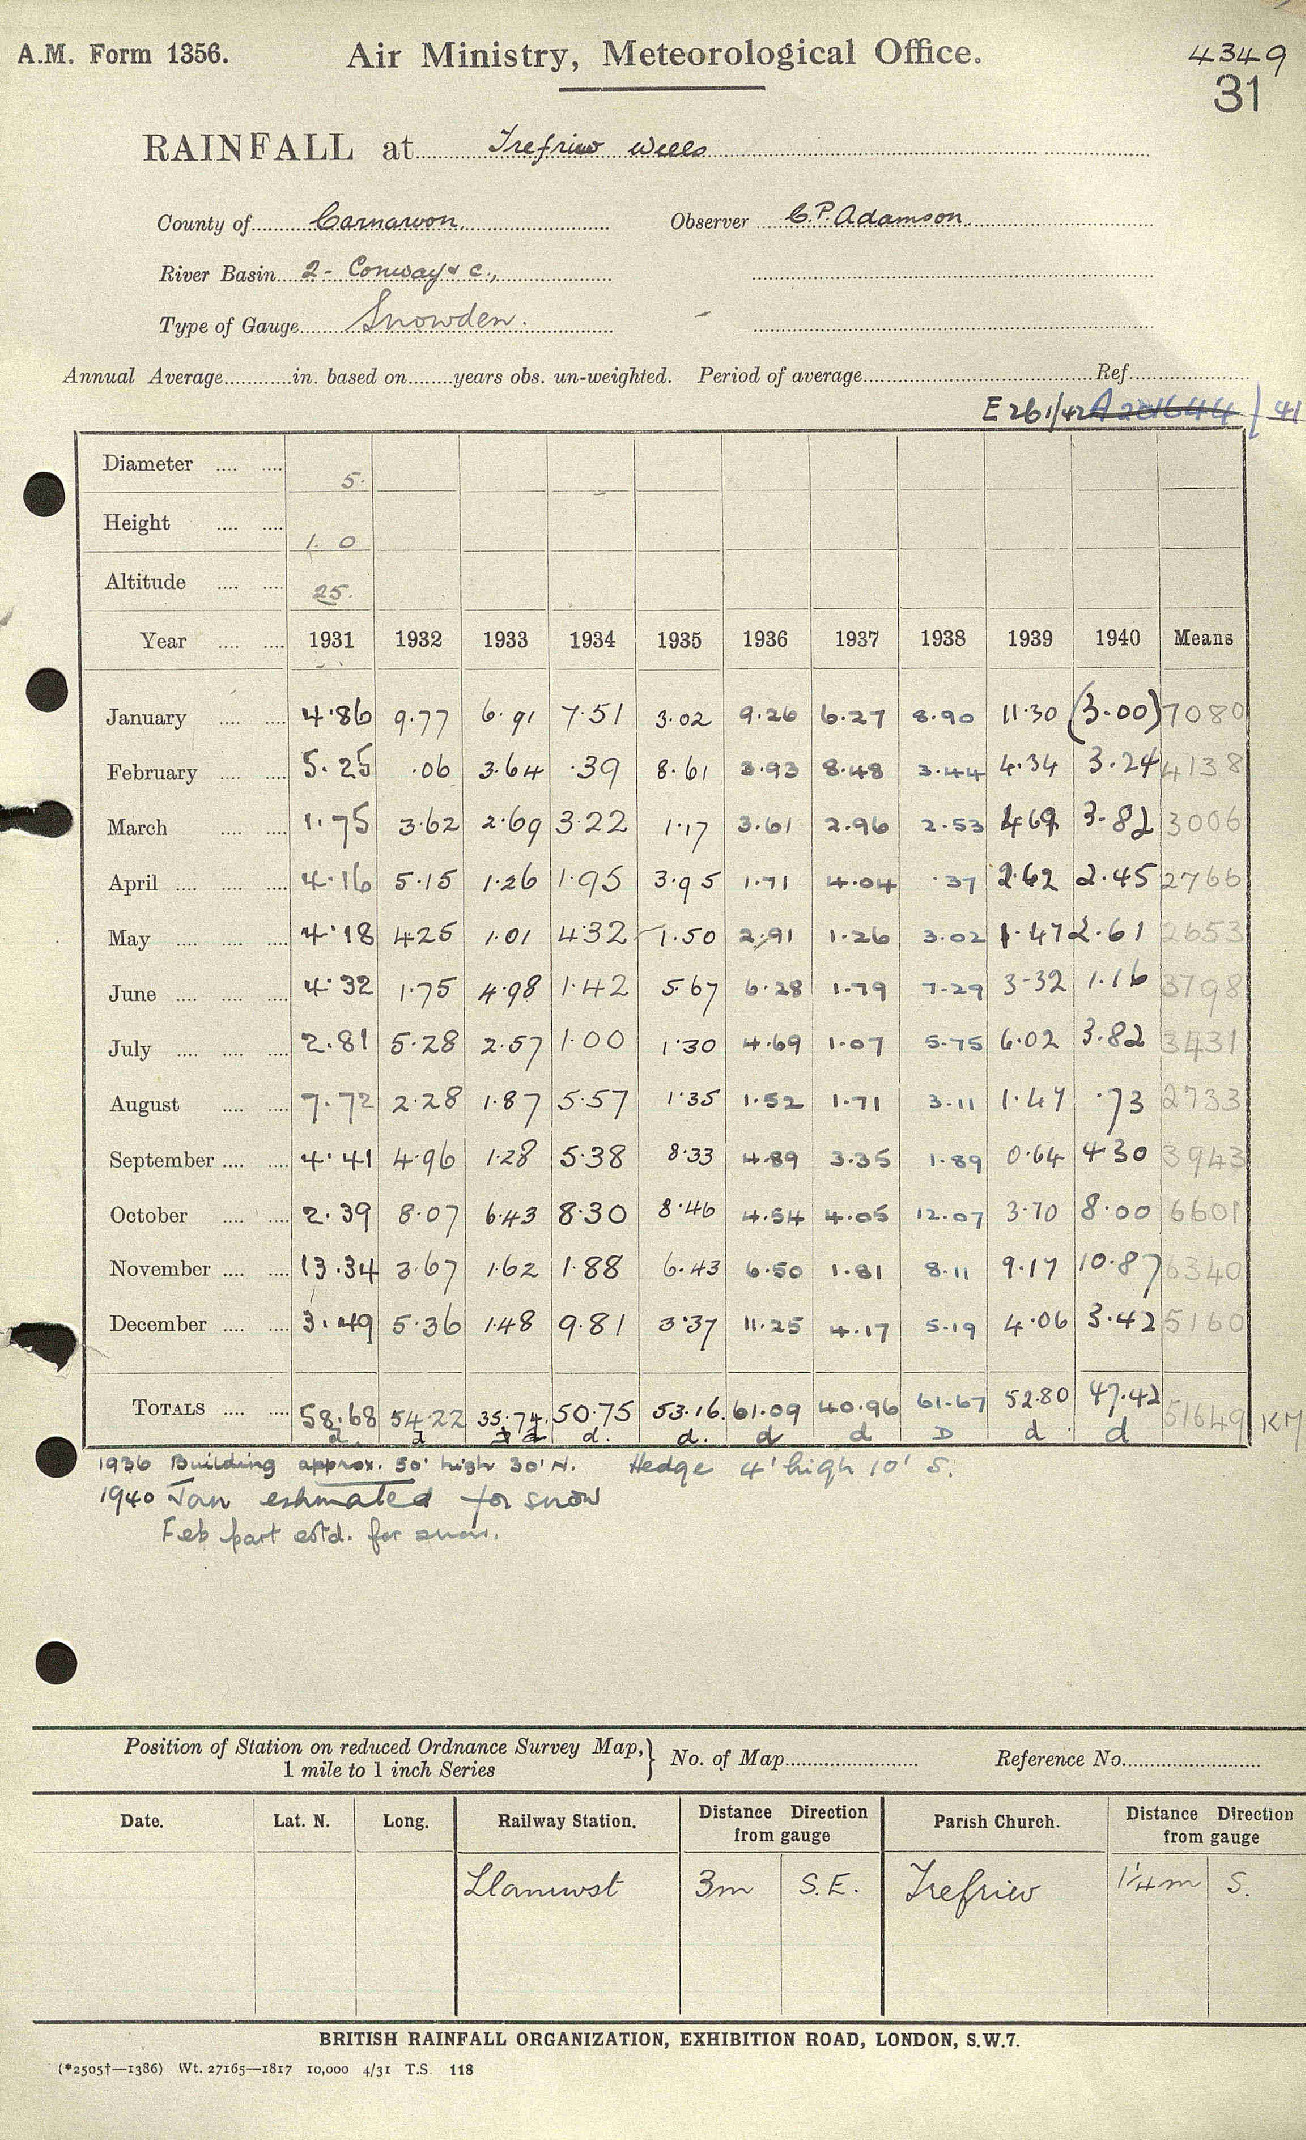 A.M. Form 1356. Air Ministry, Meteorological Office. 4349
31
RAINFALL at Trefriw Wells
County of Carnarvon. Observer C.P. Adamson.
River Basin 2- Conway & c.,
Type of Gauge Snowden.
Annual Average in. based on years obs. un-weighted. Period of average Ref
E 261/42 A 201644 / 41
Diameter 5.
Height 1. 0
Altitude 25.
Year 1931 1932 1933 1934 1935 1936 1937 1938 1939 1940 Means
January 4.86 9.77 6.91 7.51 3.02 9.26 6.27 8.90 11.30 (3.00) 7080
February 5.25 .06 3.64 .39 8.61 3.93 8.48 3.44 4.34 3.24 4138
March 1.75 3.62 2.69 3.22 1.17 3.61 2.96 2.53 4.69 3.82 3006
April 4.16 5.15 1.26 1.95 3.95 1.71 4.04 .37 2.62 2.45 2766
May 4.18 4.25 1.01 4.32 1.50 2.91 1.26 3.02 1.47 2.61 2653
June 4.32 1.75 4.98 1.42 5.67 6.28 1.79 7.29 3.32 1.16 3798
July 2.81 5.28 2.57 1.00 1.30 4.69 1.07 5.75 6.02 3.82 3431
August 7.72 2.28 1.87 5.57 1.35 1.52 1.71 3.11 1.47 .73 2733
September 4.41 4.96 1.28 5.38 8.33 4.89 3.35 1.89 0.64 4.30 3943
October 2.39 8.07 6.43 8.30 8.46 4.54 4.05 12.07 3.70 8.00 6601
November 13.34 3.67 1.62 1.88 6.43 6.50 1.81 8.11 9.17 10.87 6340
December 3.49 5.36 1.48 9.81 3.37 11.25 4.17 5.19 4.06 3.42 5160
TOTALS 58.68 54.22 35.74 50.75 53.16 61.09 40.96 61.67 52.80 47.42 51649 KM
d. d d d. d. d d D d d
1936 Building approx. 50' high 30' N. Hedge 4' high 10' S.
1940 Jan estimated for snow
Feb part estd. for snow.
Position of Station on reduced Ordnance Survey Map, } No. of Map Reference No.
1 mile to 1 inch Series
Date. Lat. N. Long. Railway Station. Distance Direction from gauge Parish Church. Distance Direction from gauge
Llanrwst 3m S.E. Trefriw 1/4m S.
BRITISH RAINFALL ORGANIZATION, EXHIBITION ROAD, LONDON, S.W.7.
(*2505†—1386) Wt. 27165—1817 10,000 4/31 T.S. 118